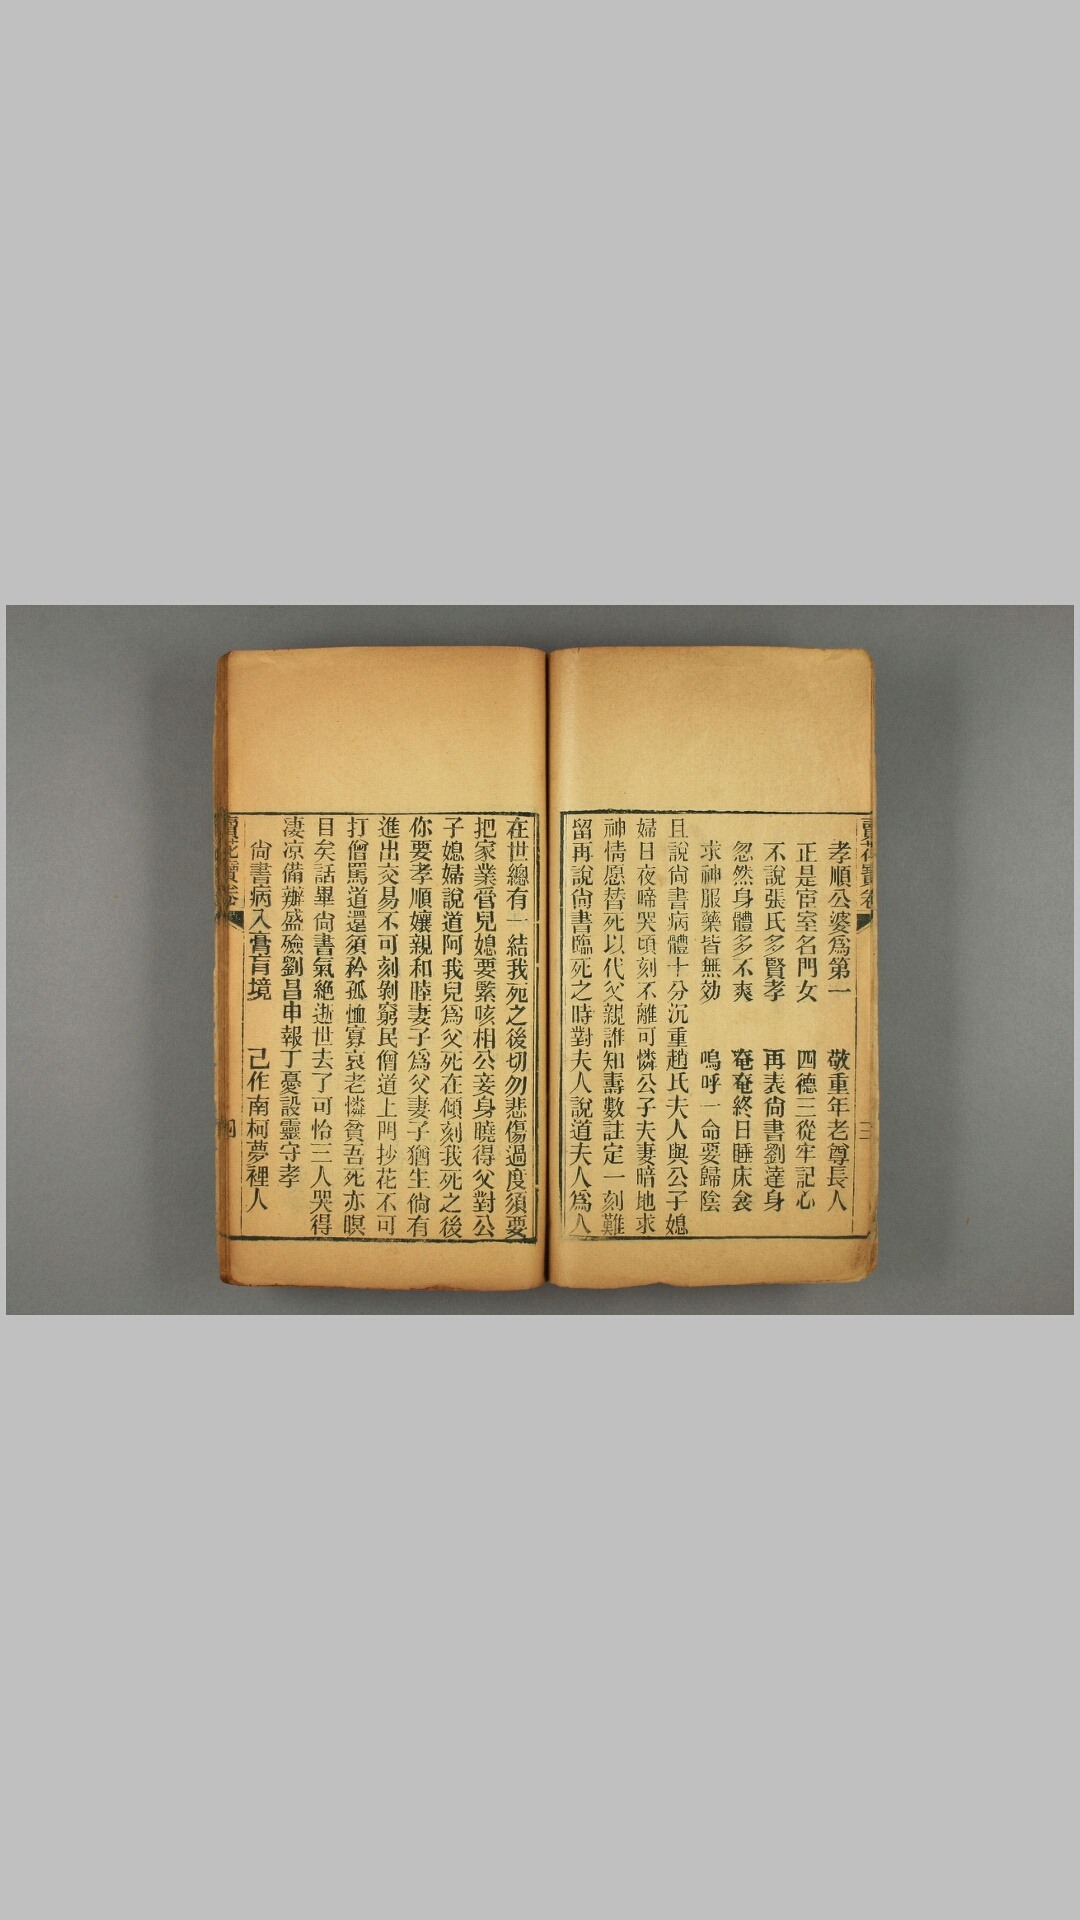 孝順公婆爲第一　敬重年老尊長人
正是宦室名門女　四德三從牢記心
不說張氏多賢孝　再表尙書劉達身
忽然身體多不爽　奄奄終日睡床衾
求神服藥皆無効　嗚呼一命要歸陰
且說尙書病體十分沉重趙氏夫人與公子媳
婦日夜啼哭頃刻不離可憐公子夫妻暗地求
神情愿替死以代父親誰知壽數註定一刻難
留再說尙書臨死之時對夫人說道夫人爲人
在世總有一結我死之後切勿悲傷過度須要
把家業管兒媳要緊咳相公妾身曉得父對公
子媳婦說道阿我兒爲父死在傾刻我死之後
你要孝順孃親和睦妻子爲父妻子猶生倘有
進出交易不可刻剝窮民僧道上門抄花不可
打僧罵道還須矜孤恤寡哀老憐貧吾死亦暝
目矣話畢尙書氣絶逝世去了可怡三人哭得
凄凉備辦盛殮劉昌申報丁憂設靈守孝
尙書病入膏肓境　己作南柯夢裡人
賣花寶卷
四